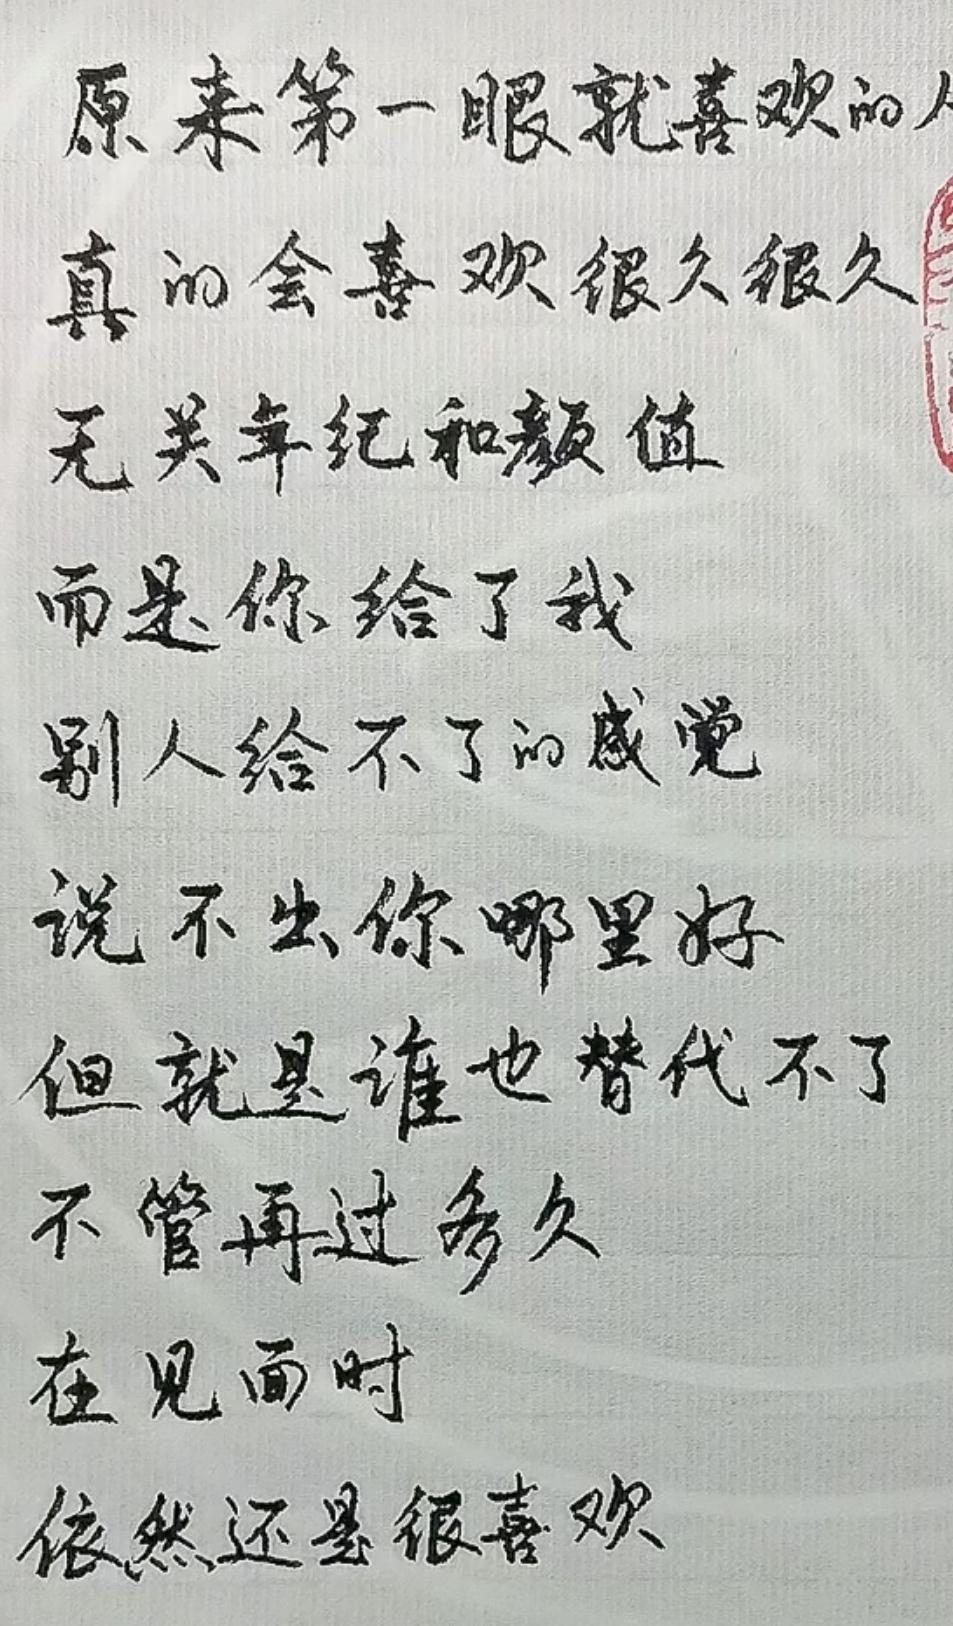 原来第一眼就喜欢的人
真的会喜欢很久很久
无关年纪和颜值
而是你给了我
别人给不了的感觉
说不出你哪里好
但就是谁也替代不了
不管再过多久
在见面时
依然还是很喜欢